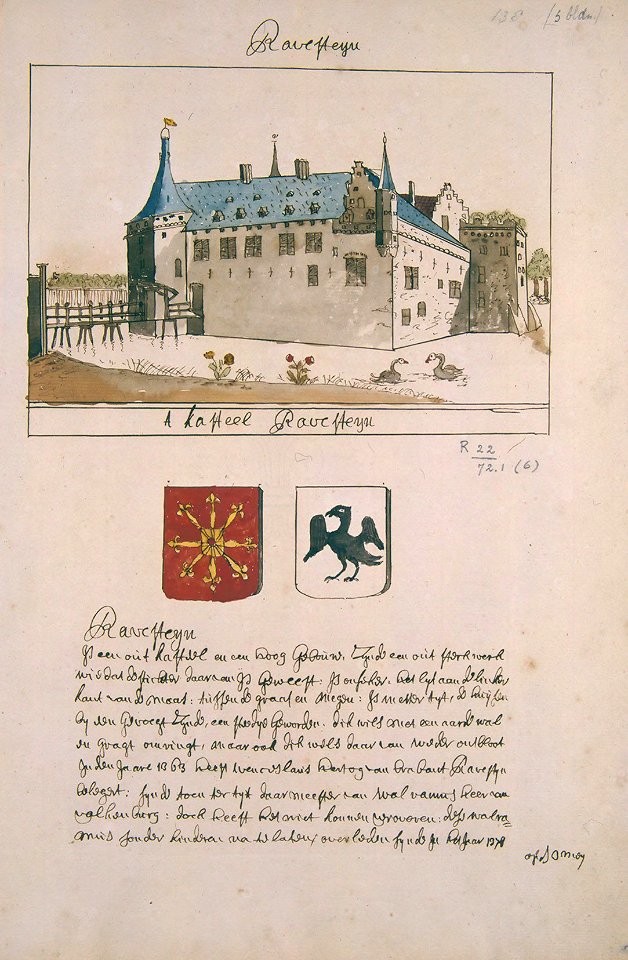 138 (5 bldn)
Ravesteijn
A kasteel Ravesteijn
R 22
72.1 (6)
Ravesteijn
Is een out kasteel en een hoog gebouw, zijnde een out sterk werk
wie dat de stichter daar van is geweest: is onseker: het lijt aan de linker
kant van de maas: tussen de graaf en megen: is metter tijt, de huijsen
bij een gevoegt zijnde, een stedije geworden. dikwils met een aarde wal
en gragt omringt, maar ook dikwils daar van weder ontbloot
In den jaare 1363 heeft wenceslaus hertog van brabant Ravestijn
belegert: sijnde toen ter tijt daar meester van walramus heer van
valkenburg: doch heeft het niet konnen veroveren: dese walra-
mus sonder kinderen na te laten, overleden sijnde in het jaar 1378